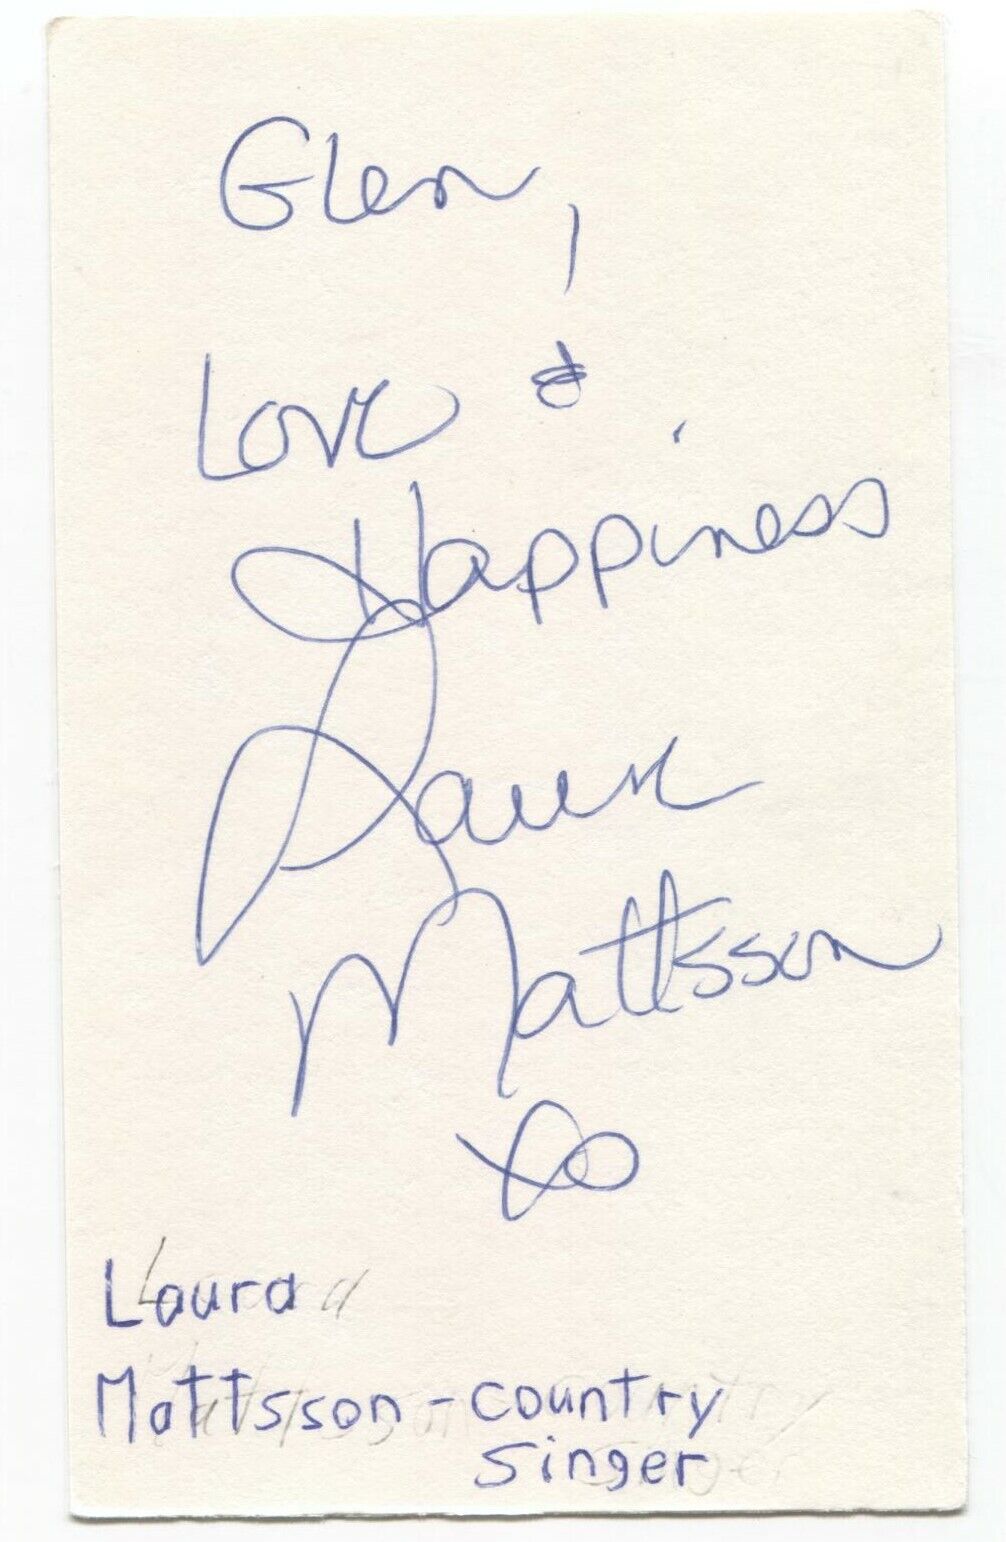 Glen,
Love &
Happiness
Laura
Mattsson
xo
Laura
Mattsson - country
singer